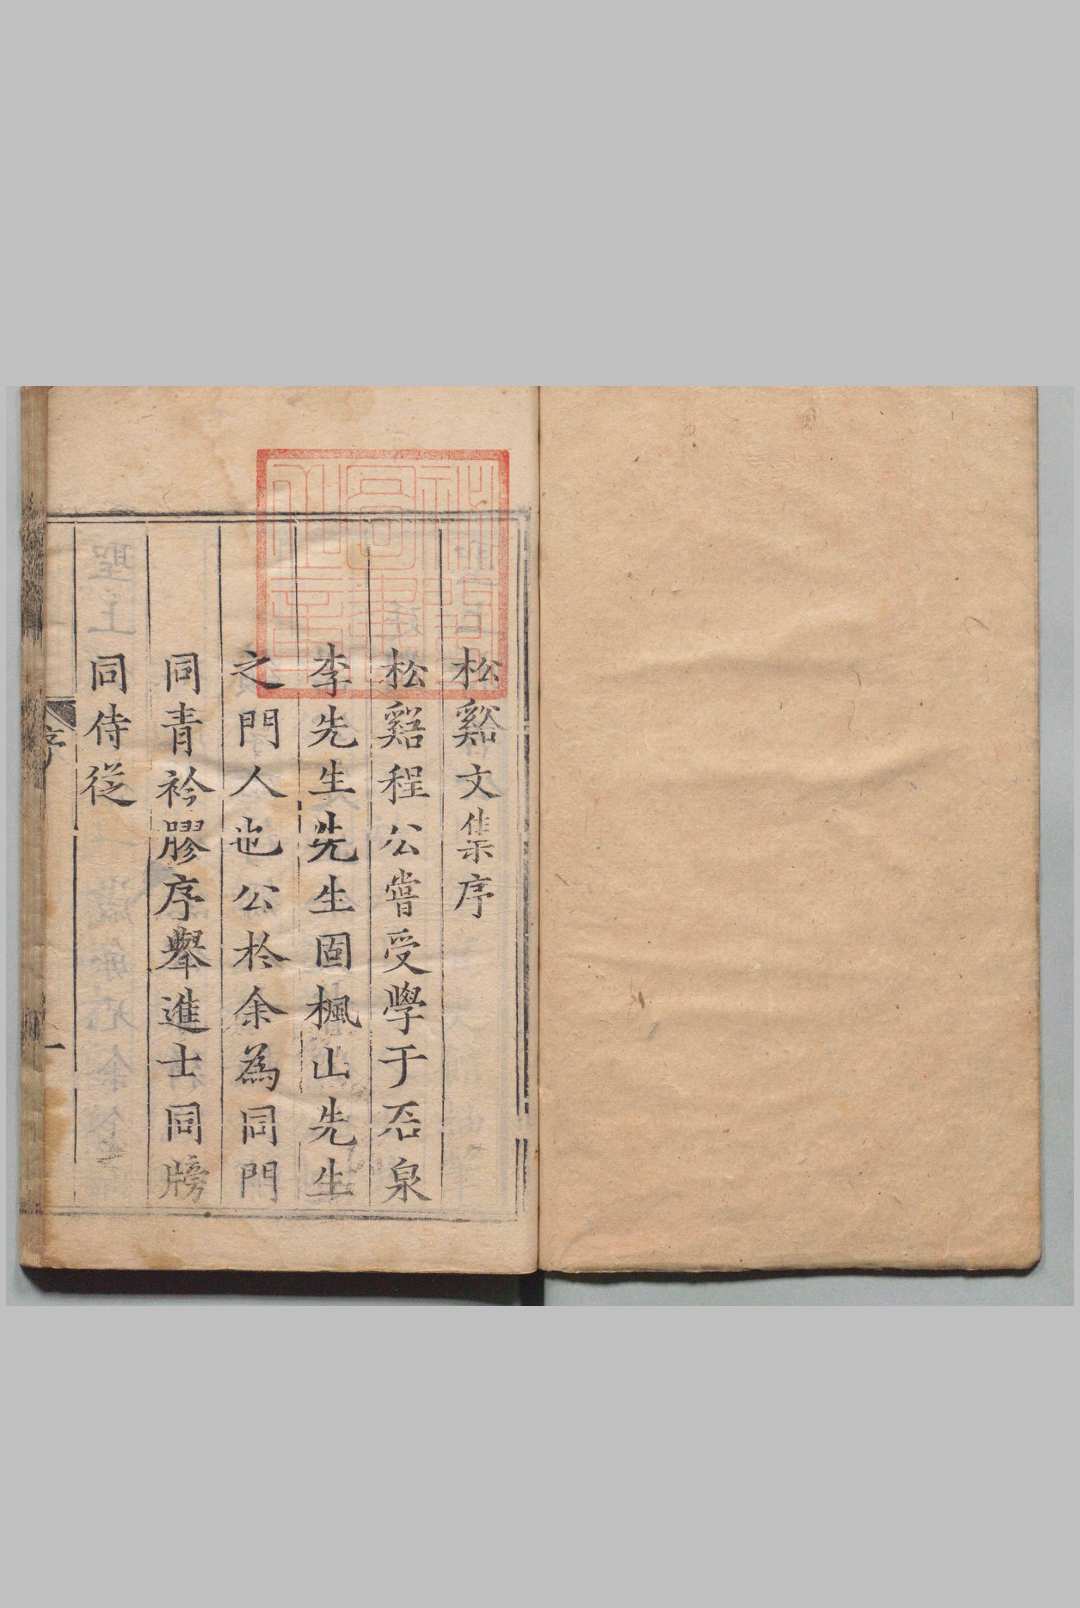 松谿文集序
松谿程公嘗受學于石泉
李先生先生固楓山先生
之門人也公於余為同門
同青衿膠序舉進士同牓
同侍從
序
一